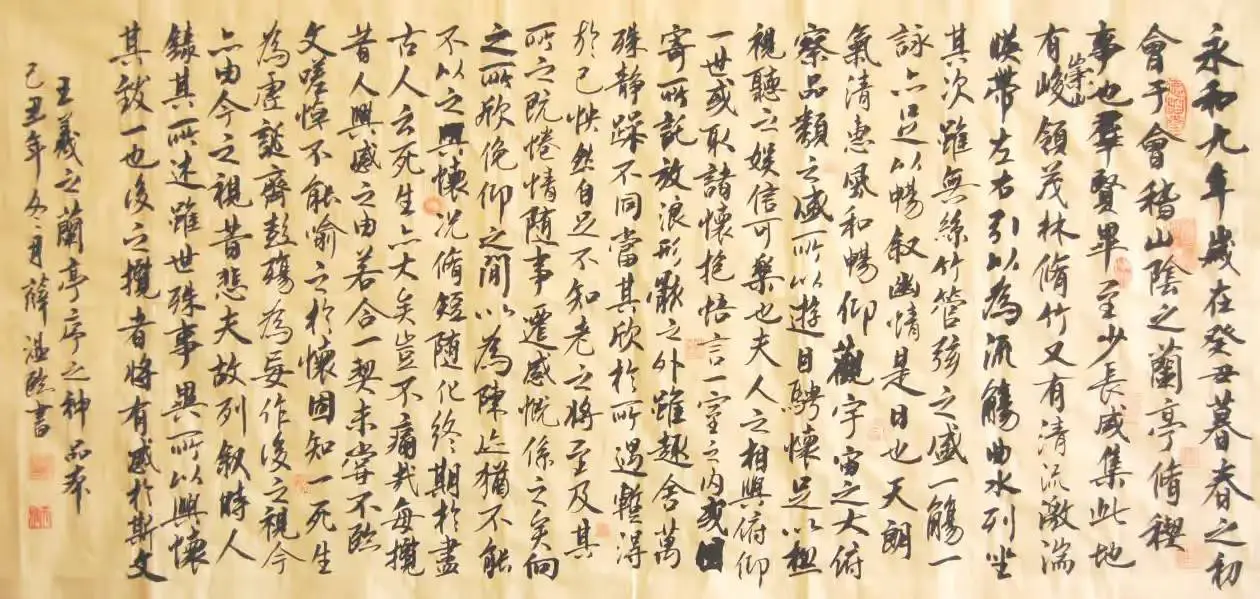 永和九年歲在癸丑暮春之初
會于會稽山陰之蘭亭脩稧
事也群賢畢至少長咸集此地
有崇山峻領茂林脩竹又有清流激湍
暎帶左右引以為流觴曲水列坐
其次雖無絲竹管弦之盛一觴一
詠亦足以暢叙幽情是日也天朗
氣清惠風和暢仰觀宇宙之大俯
察品類之盛所以遊目騁懷足以極
視聽之娛信可樂也夫人之相與俯仰
一世或取諸懷抱悟言一室之内或因
寄所託放浪形骸之外雖趣舍萬
殊静躁不同當其欣於所遇暫得
於己怏然自足不知老之將至及其
所之既惓情隨事遷感慨係之矣向
之所欣俛仰之間以為陳迹猶不能
不以之興懷況脩短隨化終期於盡
古人云死生亦大矣豈不痛哉每攬
昔人興感之由若合一契未嘗不臨
文嗟悼不能喻之於懷固知一死生
為虛誕齊彭殤為妄作後之視今
亦由今之視昔悲夫故列叙時人
錄其所述雖世殊事異所以興懷
其致一也後之攬者將有感於斯文
王羲之蘭亭序之神品本
己丑年冬月薛温臨書